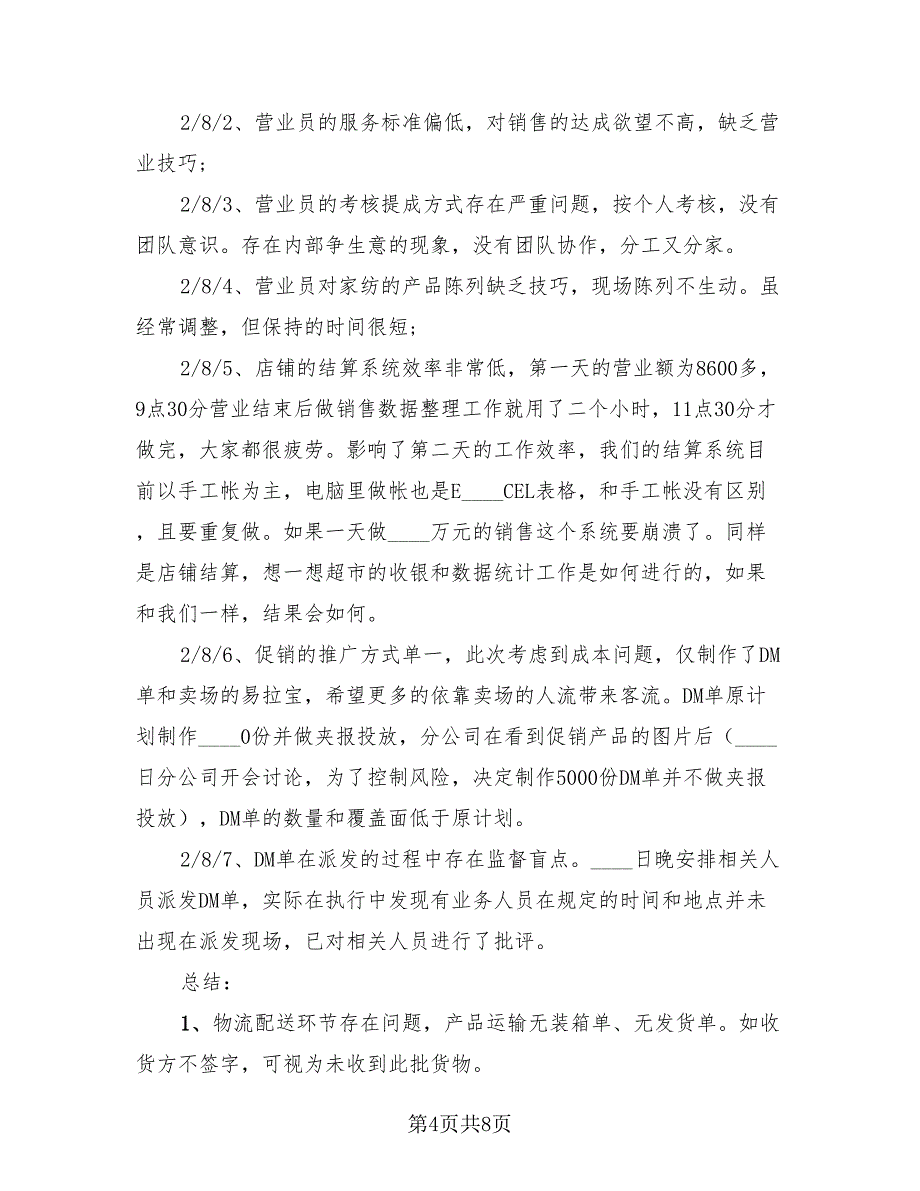 2/8/2、营业员的服务标准偏低，对销售的达成欲望不高，缺乏营
业技巧;
2/8/3、营业员的考核提成方式存在严重问题，按个人考核，没有
团队意识。存在内部争生意的现象，没有团队协作，分工又分家。
2/8/4、营业员对家纺的产品陈列缺乏技巧，现场陈列不生动。虽
经常调整，但保持的时间很短;
2/8/5、店铺的结算系统效率非常低，第一天的营业额为8600多，
9点30分营业结束后做销售数据整理工作就用了二个小时，11点30分才
做完，大家都很疲劳。影响了第二天的工作效率，我们的结算系统目
前以手工帐为主，电脑里做帐也是E____CEL表格，和手工帐没有区别
，且要重复做。如果一天做____万元的销售这个系统要崩溃了。同样
是店铺结算，想一想超市的收银和数据统计工作是如何进行的，如果
和我们一样，结果会如何。
2/8/6、促销的推广方式单一，此次考虑到成本问题，仅制作了DM
单和卖场的易拉宝，希望更多的依靠卖场的人流带来客流。DM单原计
划制作____0份并做夹报投放，分公司在看到促销产品的图片后（____
日分公司开会讨论，为了控制风险，决定制作5000份DM单并不做夹报
投放），DM单的数量和覆盖面低于原计划。
2/8/7、DM单在派发的过程中存在监督盲点。____日晚安排相关人
员派发DM单，实际在执行中发现有业务人员在规定的时间和地点并未
出现在派发现场，已对相关人员进行了批评。
总结：
1、物流配送环节存在问题，产品运输无装箱单、无发货单。如收
货方不签字，可视为未收到此批货物。
第4页共8页